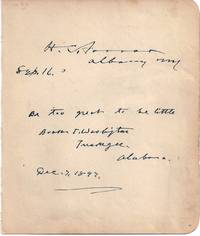 Albany NY
Sep. 16.
Be too great to be little
Booker T. Washington
Tuskegee
Alabama.
Dec. 7, 1897.